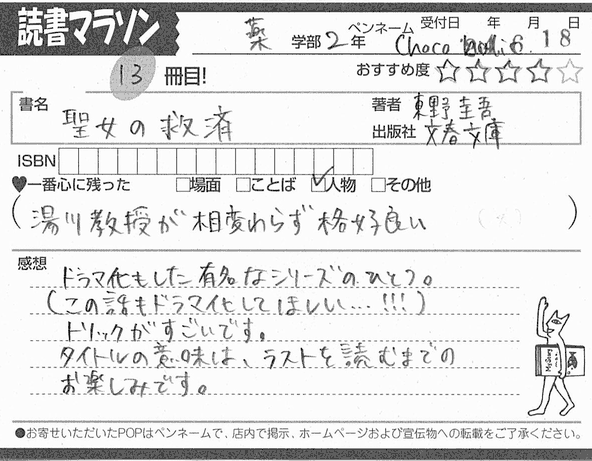 読書マラソン
薬 学部 2年 ペンネーム 受付日 年 月 日
Choco 6. 18
13 冊目! おすすめ度 ☆☆☆☆☆
書名 聖女の救済
著者 東野圭吾
出版社 文春文庫
ISBN
♥一番心に残った □場面 □ことば ☑人物 □その他
(湯川教授が相変わらず格好良い)
感想
ドラマ化もした有名なシリーズのひとつ。
(この話もドラマ化してほしい…!!!)
トリックがすごいです。
タイトルの意味は、ラストを読むまでの
お楽しみです。
●お寄せいただいたPOPはペンネームで、店内で掲示、ホームページおよび宣伝物への転載をご了承ください。